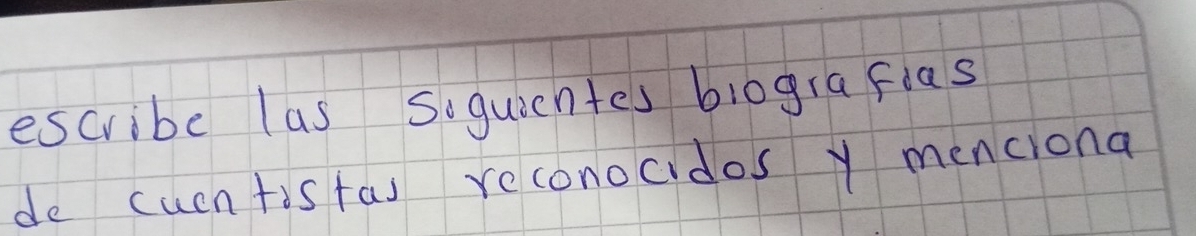 escribe las siguientes biografias
de cuentistas reconocidos y menciona